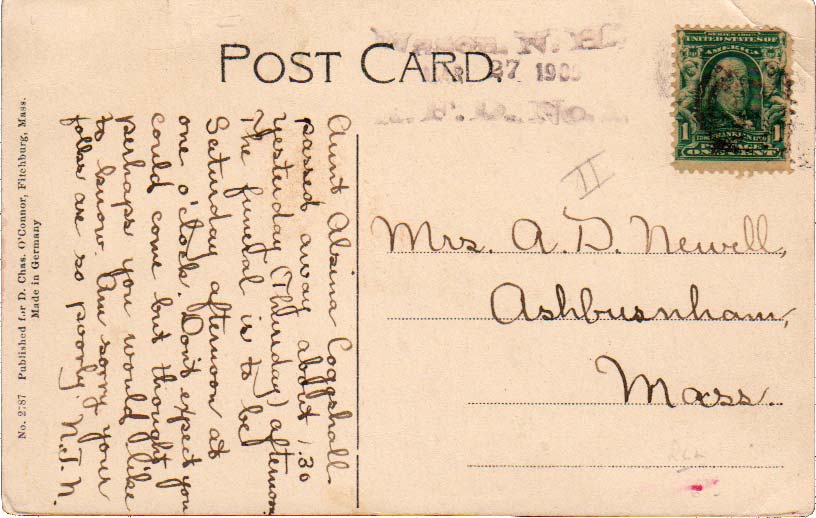 POST CARD.
27 1909
SERIES 1902
UNITED STATES OF
AMERICA
1 1
POSTAGE
ONE CENT
II
Mrs. A. D. Newell,
Ashburnham,
Mass.
Aunt Alsina Coggshall
passed away about 1.30
yesterday (Thursday) afternoon
The funeral is to be
Saturday afternoon at
one o'clock. Don't expect you
could come but thought
perhaps you would like
to know. Am sorry your
folks are so poorly. N.J.N.
No. 2787 Published for D. Chas. O'Connor, Fitchburg, Mass.
Made in Germany